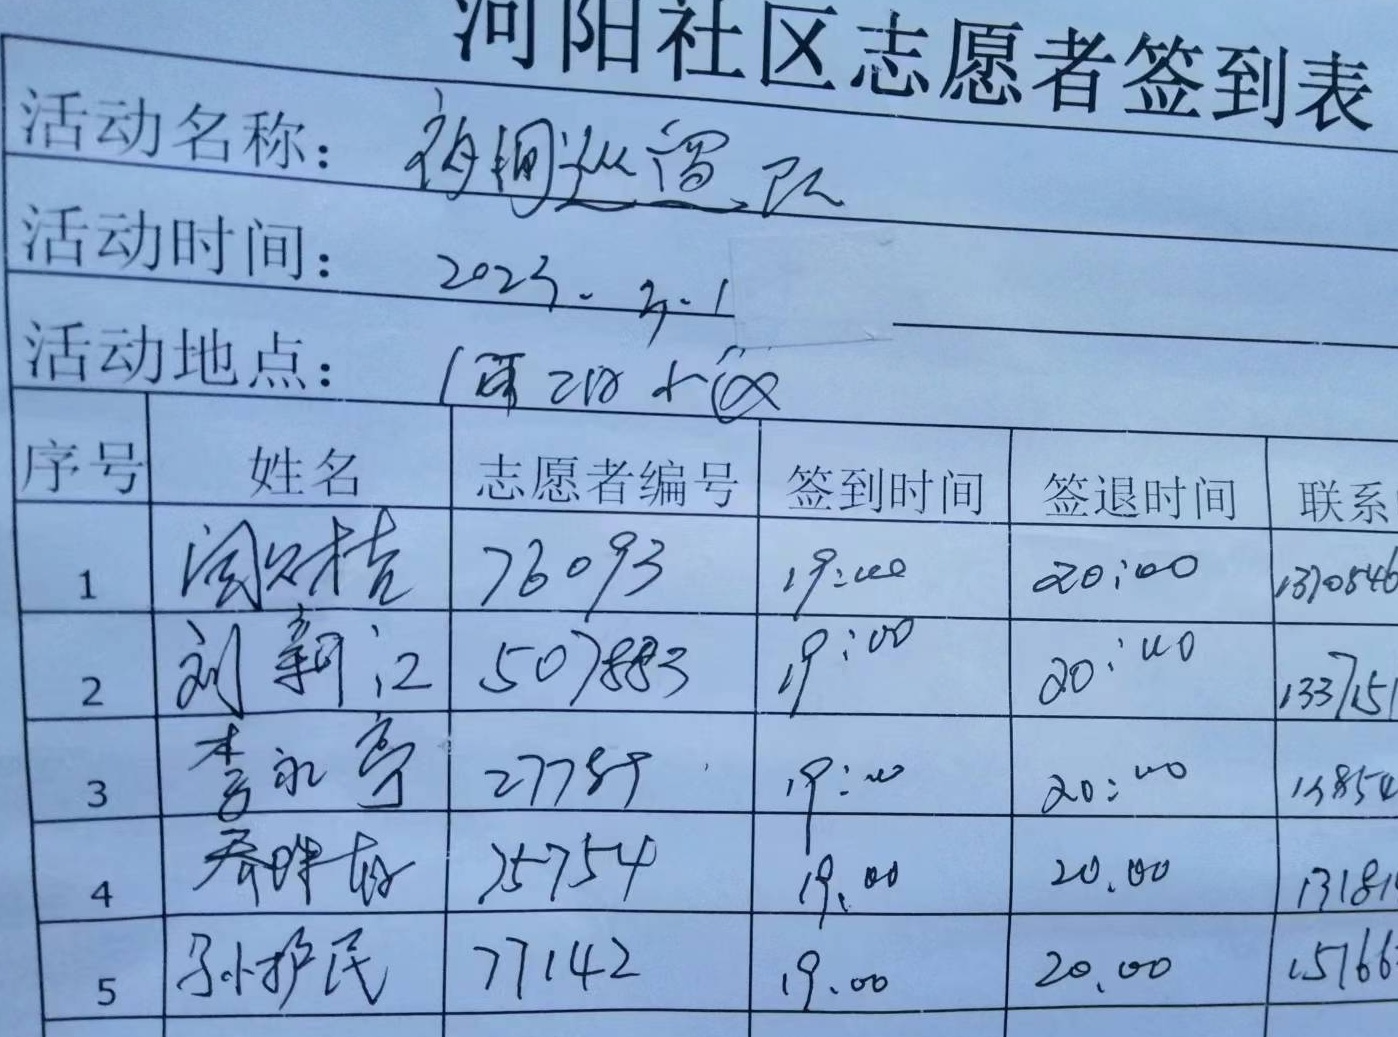 河阳社区志愿者签到表
活动名称： 夜间巡逻队
活动时间： 2023.3.1
活动地点： 小区
序号 姓名 志愿者编号 签到时间 签退时间 联系
1 76093 19:00 20:00 1370546
2 刘新江 507883 19:00 20:00 133715
3 李永亭 27789 19:00 20:00 13854
4 75754 19.00 20.00 13181
5 孙护民 77142 19.00 20.00 15166